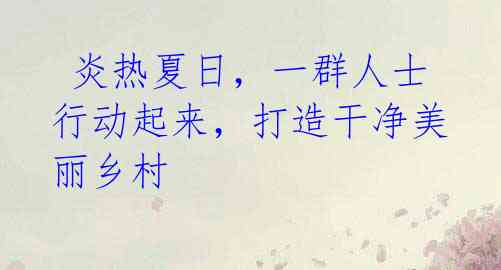 炎热夏日，一群人士
行动起来，打造干净美
丽乡村